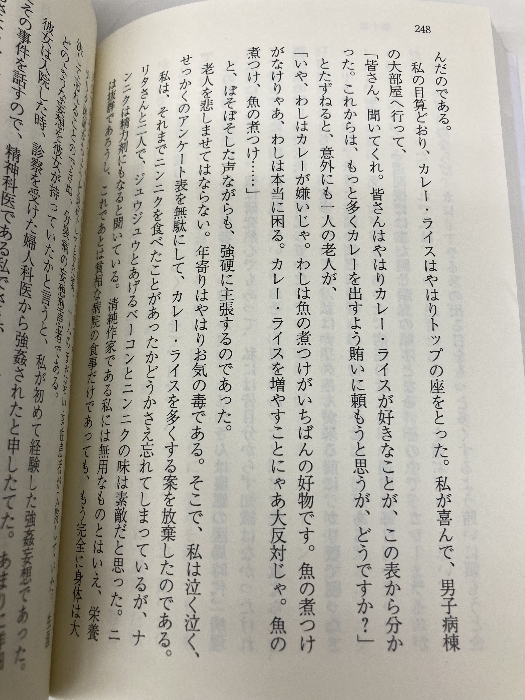 248
んだのである。
私の目算どおり、カレー・ライスはやはりトップの座をとった。私が喜んで、男子病棟
の大部屋へ行って、
「皆さん、聞いてくれ。皆さんはやはりカレー・ライスが好きなことが、この表から分か
った。これからは、もっと多くカレーを出すよう賄いに頼もうと思うが、どうですか？」
とたずねると、意外にも一人の老人が、
「いや、わしはカレーが嫌いじゃ。わしは魚の煮つけがいちばんの好物です。魚の煮つけ
がなけりゃあ、わしは本当に困る。カレー・ライスを増やすことにゃあ大反対じゃ。魚の
煮つけ、魚の煮つけ……」
と、ぼそぼそした声ながらも、強硬に主張するのであった。
老人を悲しませてはならない。年寄りはやはりお気の毒である。そこで、私は泣く泣く、
せっかくのアンケート表を無駄にして、カレー・ライスを多くする案を放棄したのである。
私は、それまでニンニクを食べたことがあったかどうかさえ忘れてしまっているが、ナ
リタさんと二人で、ジュウジュウとあげるベーコンとニンニクの味は素敵だと思った。ニ
ンニクは精力剤にもなると聞いている。清純作家である私には無用なものとはいえ、栄養
は抜群であろうし、これであとは貧相な病院の食事だけであっても、もう完全に身体は大
彼女は入院した時、診察を受けた婦人科医から強姦されたと申したてた。あまりに
その事件を話すので、精神科医である私でさえ